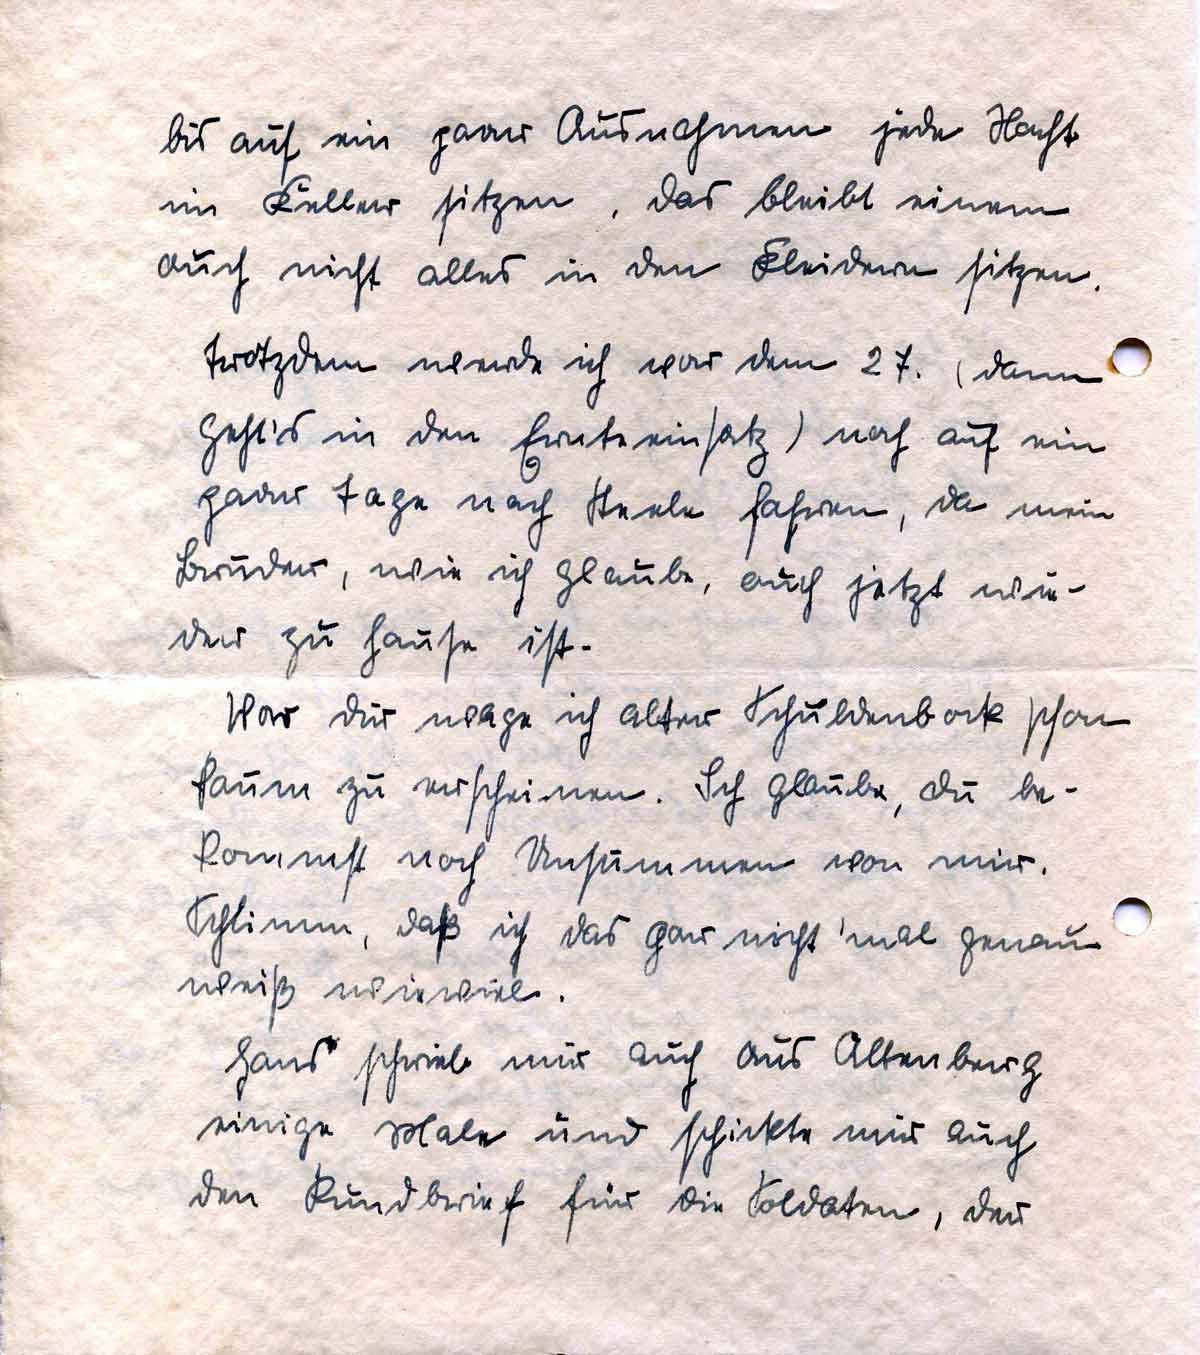 bis auf ein paar Ausnahmen jede Nacht
im Keller sitzen, das bleibt einem
auch nicht alles in den Kleidern sitzen.
Trotzdem werde ich vor dem 27. (dann
geht's in den Ernteeinsatz) noch auf ein
paar Tage nach Steele fahren, da mein
Bruder, wie ich glaube, auch jetzt wie-
der zu Hause ist.
Vor dir wage ich alter Schuldenbock schon
kaum zu erscheinen. Ich glaube, du be-
kommst noch Unsummen von mir.
Schlimm, daß ich das gar nicht 'mal genau
weiß wieviel.
Hans schrieb mir auch aus Altenberg
einige Male und schickte mir auch
den Rundbrief für die Soldaten, der